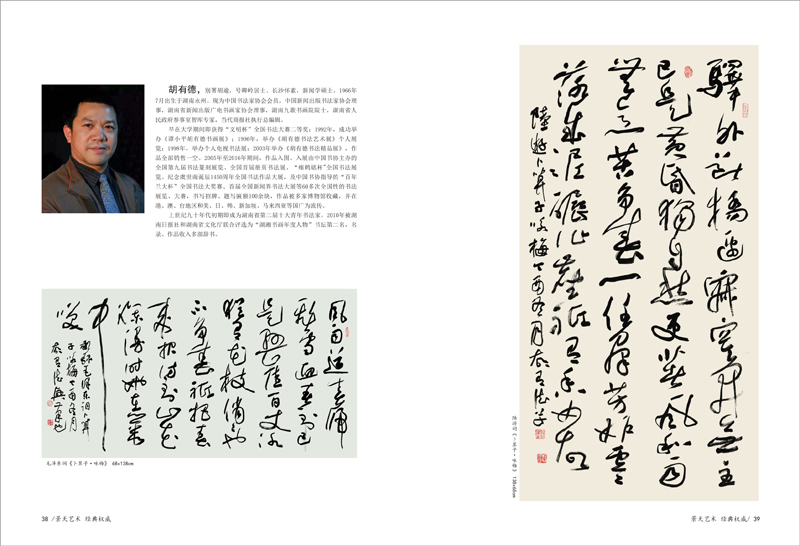 胡有德，别署胡迪，号卿岭居士、长沙怀素，新闻学硕士，1966年
7月出生于湖南永州。现为中国书法家协会会员，中国新闻出版书法家协会理
事，湖南省新闻出版广电书画家协会理事，湖南九歌书画院院士，湖南省人
民政府参事室智库专家，当代商报社执行总编辑。
早在大学期间即获得“文明杯”全国书法大赛二等奖；1992年，成功举
办《谭小平胡有德书画展》；1996年，举办《胡有德书法艺术展》个人展
览；1998年，举办个人电视书法展；2003年举办《胡有德书法精品展》，作
品全部销售一空。2005年至2016年期间，作品入围、入展由中国书协主办的
全国第九届书法篆刻展览、全国首届册页书法展、“雁鹤铭杯”全国书法展
览、纪念欧里南诞辰1450周年全国书法作品大展，及中国书协指导的“百年
兰大杯”全国书法大奖赛、首届全国新闻界书法大展等60多次全国性的书法
展览、大赛，书写招牌、题写匾额100余块，作品被多家博物馆收藏，并在
港、澳、台地区和美、日、韩、新加坡、马来西亚等国广为流传。
上世纪九十年代初期即成为湖南省第二届十大青年书法家，2010年被湖
南日报社和湖南省文化厅联合评选为“湖湘书画年度人物”书坛第二名，名
录、作品收入多部辞书。
風雨送春歸
飛雪迎春到已
是懸崖百丈冰
猶有花枝俏俏也
不爭春祗把春
來報待到山花
爛漫時她在叢
中
笑
毛澤東詞卜算
子咏梅丁酉冬月
胡有德
毛泽东词《卜算子·咏梅》 68×138cm
驛外斷橋邊寂寞開無主
已是黃昏獨自愁更著風和雨
無意苦爭春一任群芳妒零
落成泥碾作塵祗有香如故
陸游卜算子咏梅丁酉冬月胡有德書
陆游词《卜算子·咏梅》 138×68cm
38 /景天艺术 经典权威
景天艺术 经典权威/ 39